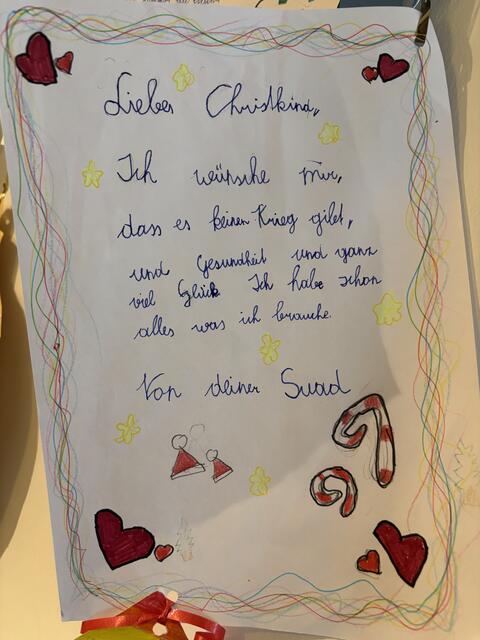 Liebes Christkind,
Ich wünsche mir,
dass es keinen Krieg gibt,
und Gesundheit und ganz
viel Glück Ich habe schon
alles was ich brauche.
Von deiner Suad